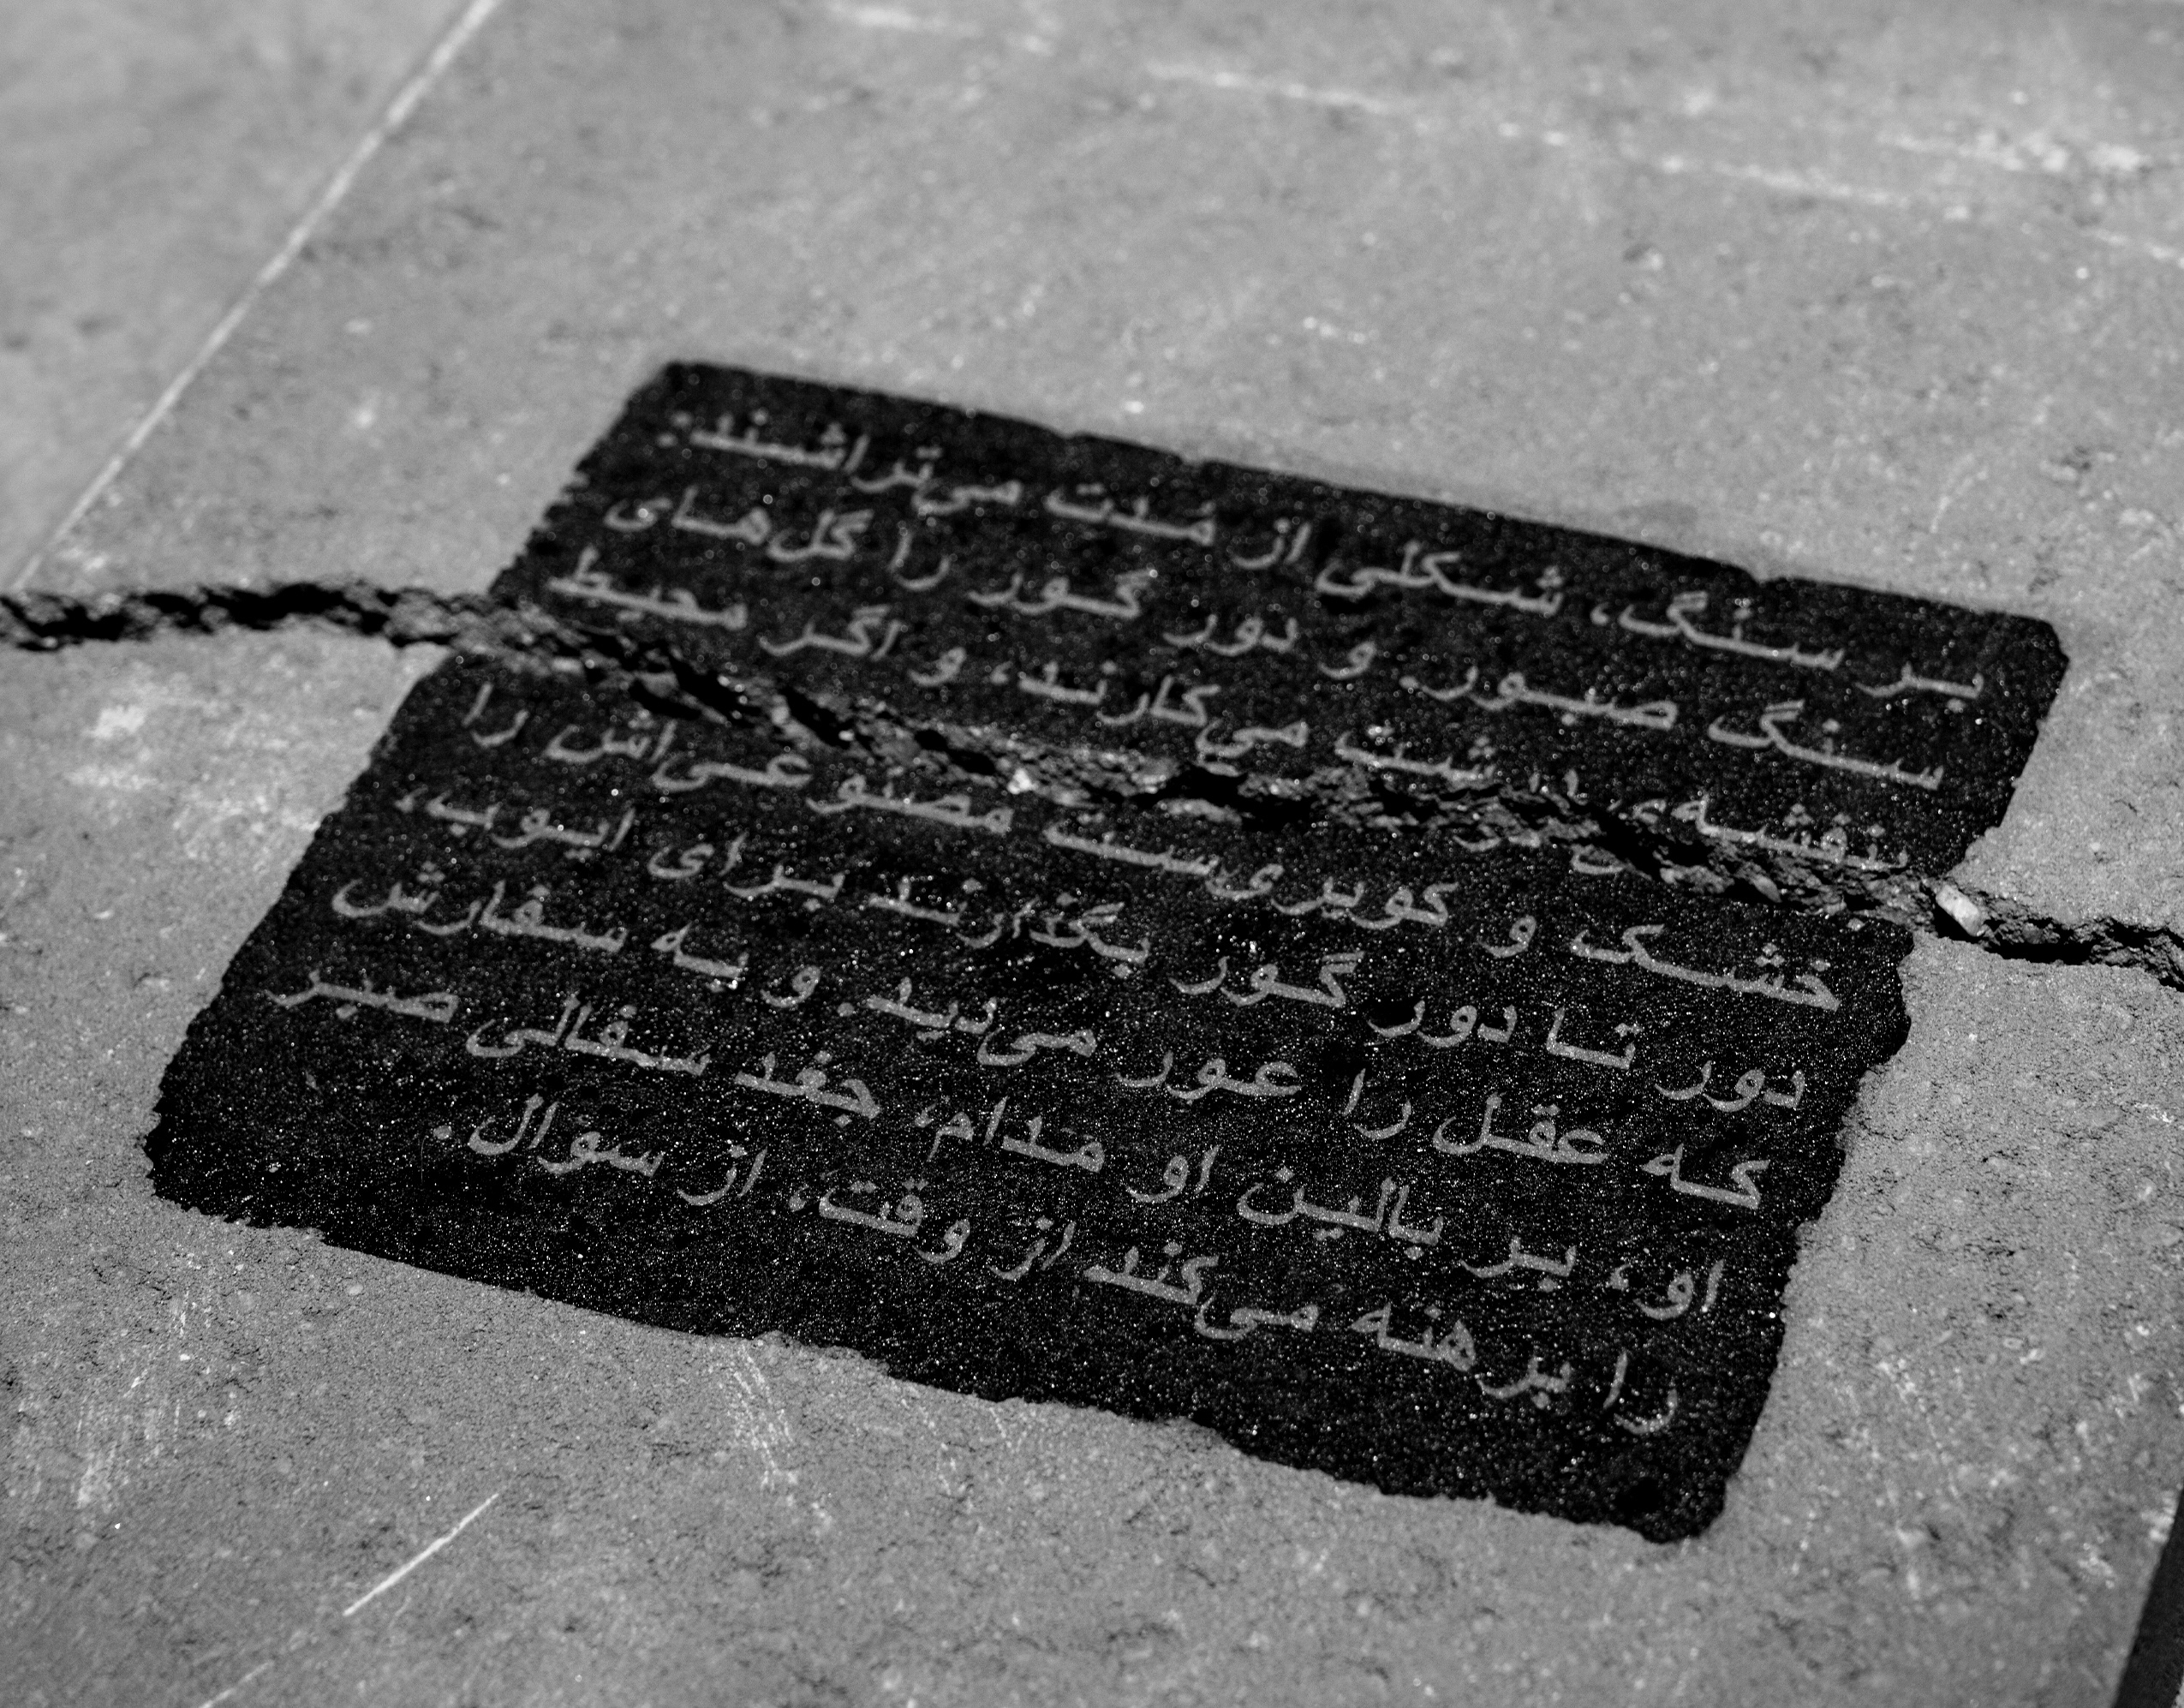 بر سنگ، شکلی از مُدت می‌تراشند:
سنگ صبور. و دور گور را گل‌های
بنفشه‌ی می‌کارند، و اگر محیط
خشک و کویری‌ست مصنوعی‌اش را
دور تا دور گور بگذارند برای ایوب،
که عقل را عور می‌دید. و به سفارش
او، بر بالین او مدام، جغد سفالی صبر
را برهنه می‌کند از وقت، از سوال.